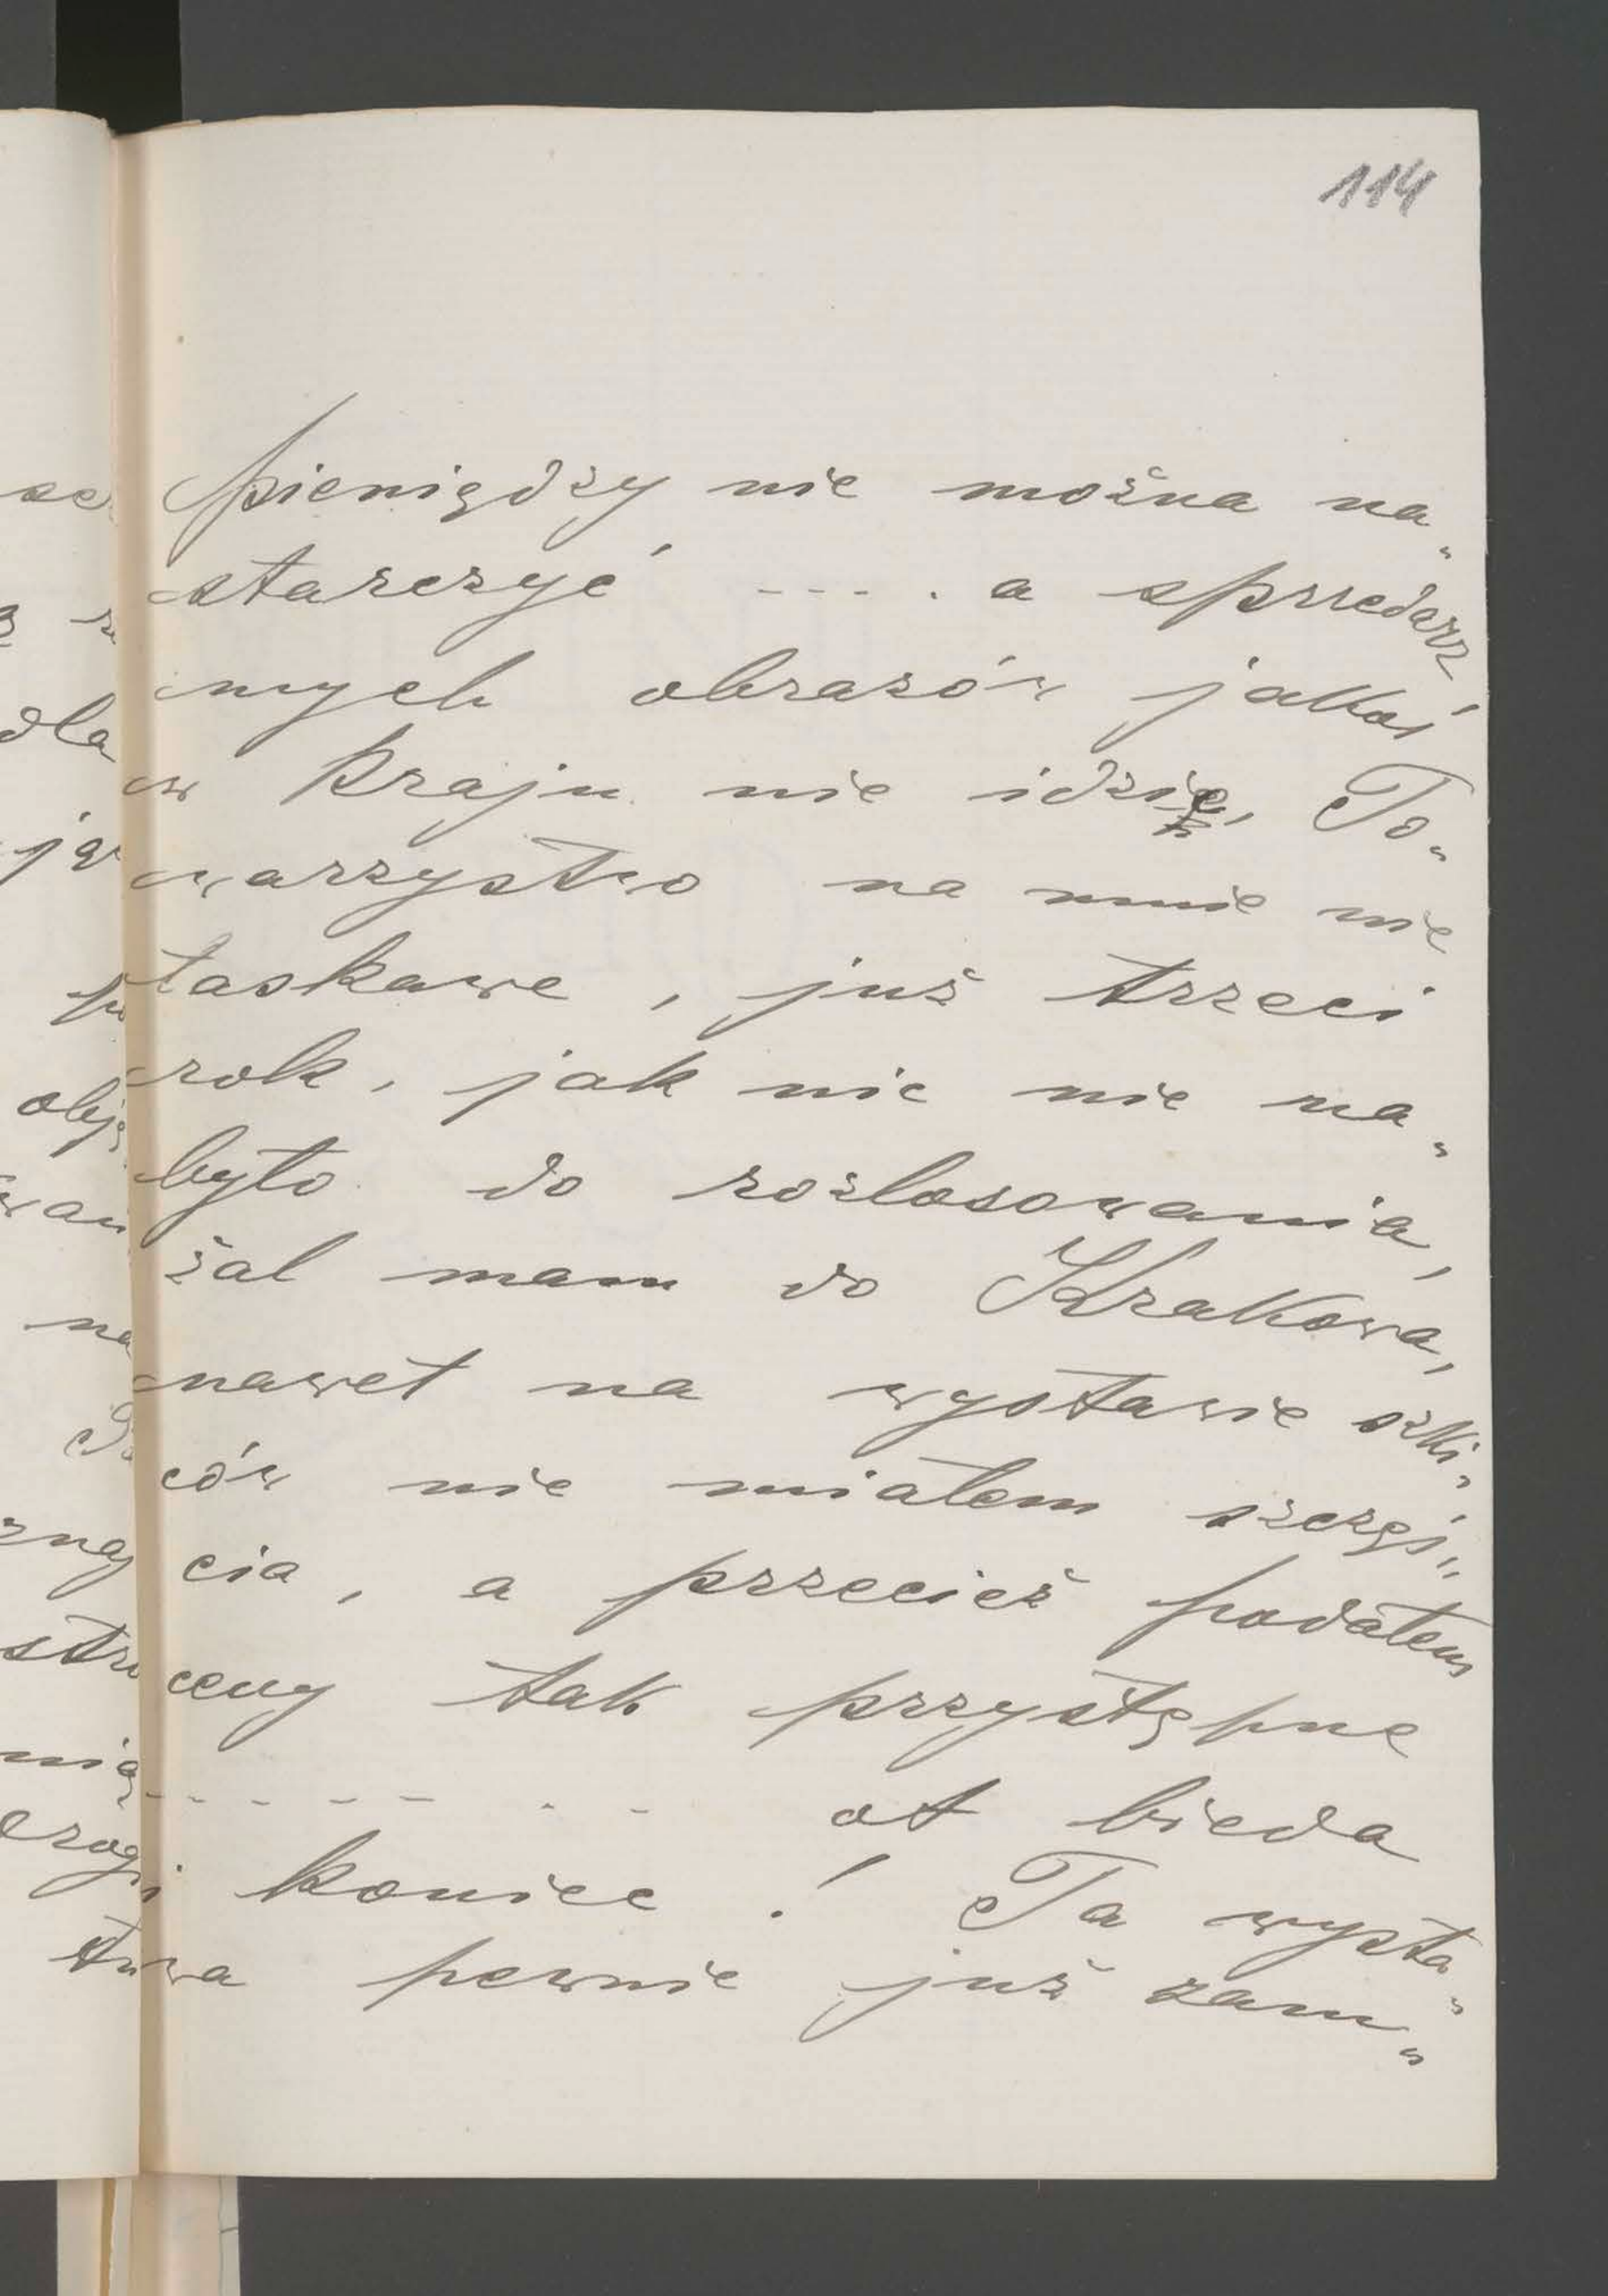 114
pieniędzy nie można na„
starczyć ----. a sprzedarz
mych obrazów jakoś
w kraju nie idzie, To„
warzystwo na mnie nie
łaskawe, już trzeci
rok, jak nic nie na„
było do rozlosowania,
żal mam do Krakowa,
nawet na wystawie szki„
ców nie miałem szczęś„
cia, a przecież podałem
ceny tak przystępne
- - - - - - . - ot bieda
i koniec! Ta wysta„
wa pewnie już zam„